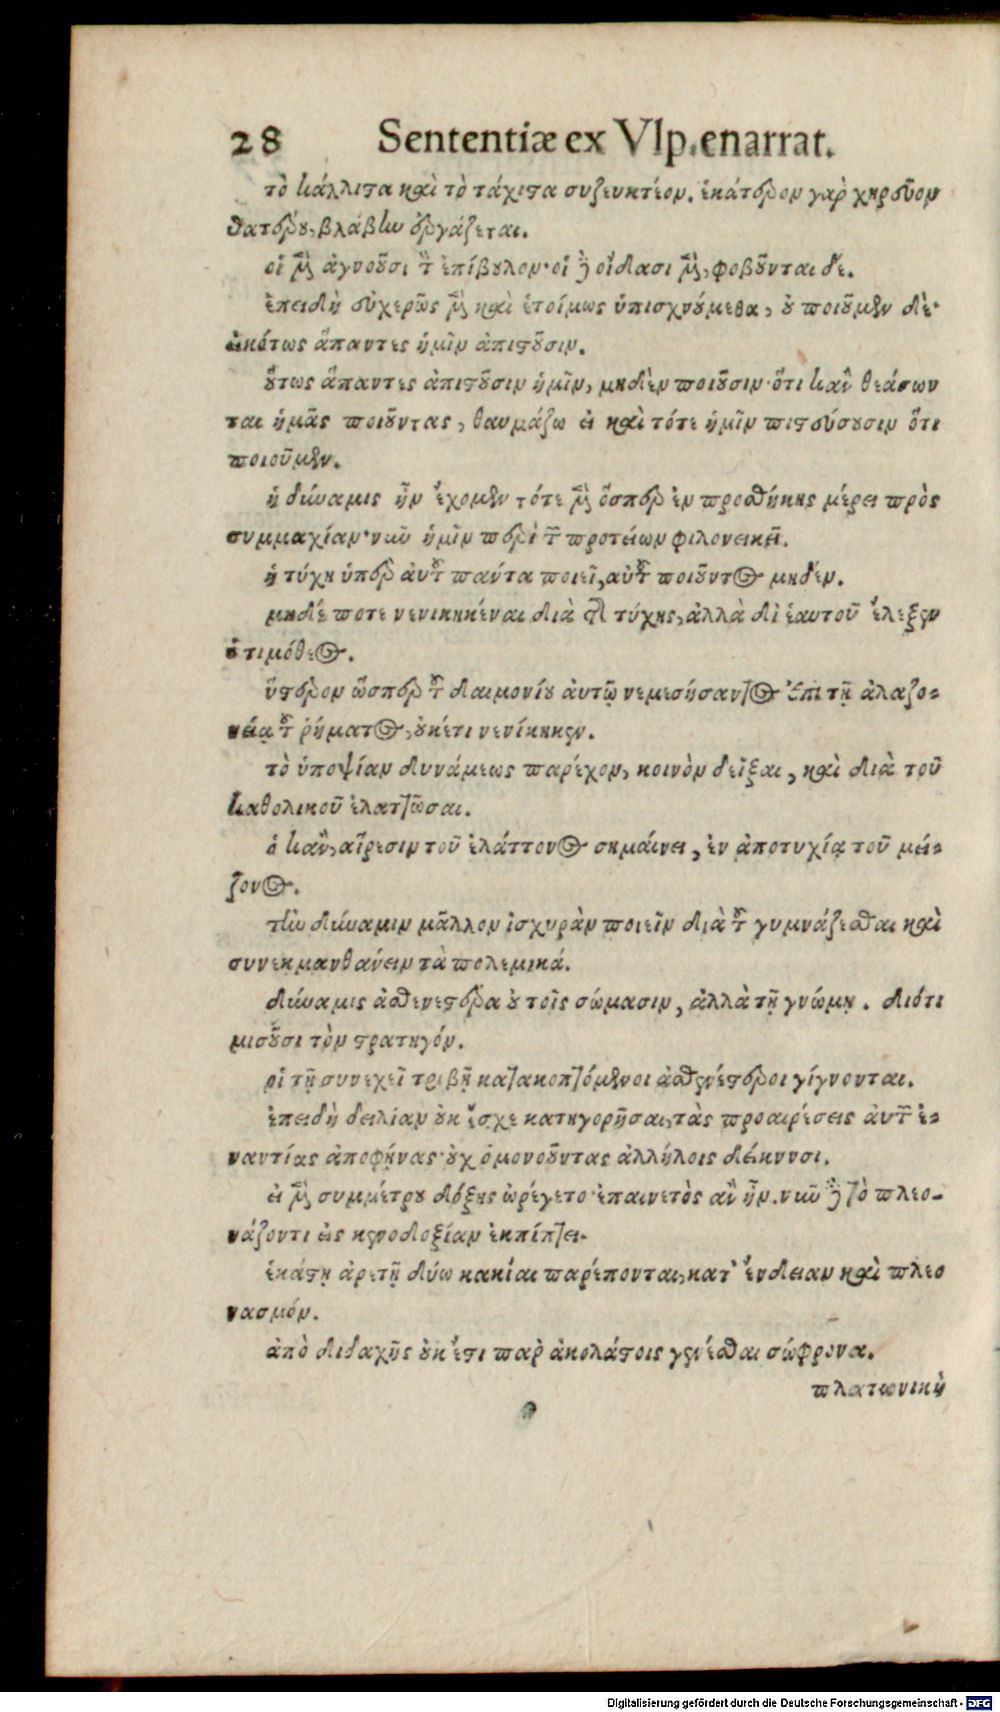 28 Sententiæ ex Vlp. enarrat.
τὸ κάλλιστα καὶ τὸ τάχιστα συζευκτέον. ἑκάτερον γὰρ χηρεῦον
θατέρου, βλάβην ἐργάζεται.
οἱ μὲν ἀγνοοῦσι τὸν ἐπίβουλον· οἱ δὲ οἴδασι μὲν, φοβοῦνται δέ.
ἐπειδὴ εὐχερῶς μὲν καὶ ἑτοίμως ὑπισχνούμεθα, οὐ ποιοῦμεν δὲ·
εἰκότως ἅπαντες ἡμῖν ἀπιστοῦσιν.
οὕτως ἅπαντες ἀπιστοῦσιν ἡμῖν, μηδὲν ποιοῦσιν· ὅτι κἂν θεάσων
ται ἡμᾶς ποιοῦντας, θαυμάζω εἰ καὶ τότε ἡμῖν πιστεύσουσιν ὅτι
ποιοῦμεν.
ἡ δύναμις ἣν ἔχομεν τότε μὲν ὥσπερ ἐν προσθήκης μέρει πρὸς
συμμαχίαν· νῦν ἡμῖν περὶ τῶν πρωτείων φιλονεικεῖ.
ἡ τύχη ὑπὲρ αὐτοῦ πάντα ποιεῖ, αὐτοῦ ποιοῦντος μηδέν.
μηδέ ποτε νενικηκέναι διὰ τῆς τύχης, ἀλλὰ δι' ἑαυτοῦ ἔλεξεν
ὁ τιμόθεος.
ὕστερον ὥσπερ τοῦ δαιμονίου αὐτῷ νεμεσήσαντος ἐπὶ τῇ ἀλαζο-
νείᾳ τοῦ ῥήματος, οὐκέτι νενίκηκεν.
τὸ ὑποψίαν δυνάμεως παρέχον, κοινὸν δεῖξαι, καὶ διὰ τοῦ
καθολικοῦ ἐλαττῶσαι.
ὁ κἂν, αἵρεσιν τοῦ ἐλάττονος σημαίνει, ἐν ἀποτυχίᾳ τοῦ μεί-
ζονος.
τὴν δύναμιν μᾶλλον ἰσχυρὰν ποιεῖν διὰ τοῦ γυμνάζεσθαι καὶ
συνεκμανθάνειν τὰ πολεμικά.
δύναμις ἀσθενεστέρα οὐ τοῖς σώμασιν, ἀλλὰ τῇ γνώμῃ. διότι
μισοῦσι τὸν στρατηγόν.
οἱ τῇ συνεχεῖ τριβῇ κατακοπτόμενοι ἀσθενέστεροι γίγνονται.
ἐπειδὴ δειλίαν οὐκ ἴσχε κατηγορῆσαι, τὰς προαιρέσεις αὐτῶν ἐ-
ναντίας ἀποφήνας· οὐχ ὁμονοοῦντας ἀλλήλοις δείκνυσι.
εἰ μὲν συμμέτρου δόξης ὠρέγετο· ἐπαινετὸς ἂν ἦν. νῦν δὲ τὸ πλεο-
νάζοντι εἰς κενοδοξίαν ἐκπίπτει.
ἑκάστῃ ἀρετῇ δύω κακίαι παρέπονται, κατ' ἔνδειαν καὶ πλεο
νασμόν.
ἀπὸ διδαχῆς οὐκ ἔστι παρ' ἀκολάστοις γενέσθαι σώφρονα.
πλατωνικὴ
Digitalisierung gefördert durch die Deutsche Forschungsgemeinschaft - DFG